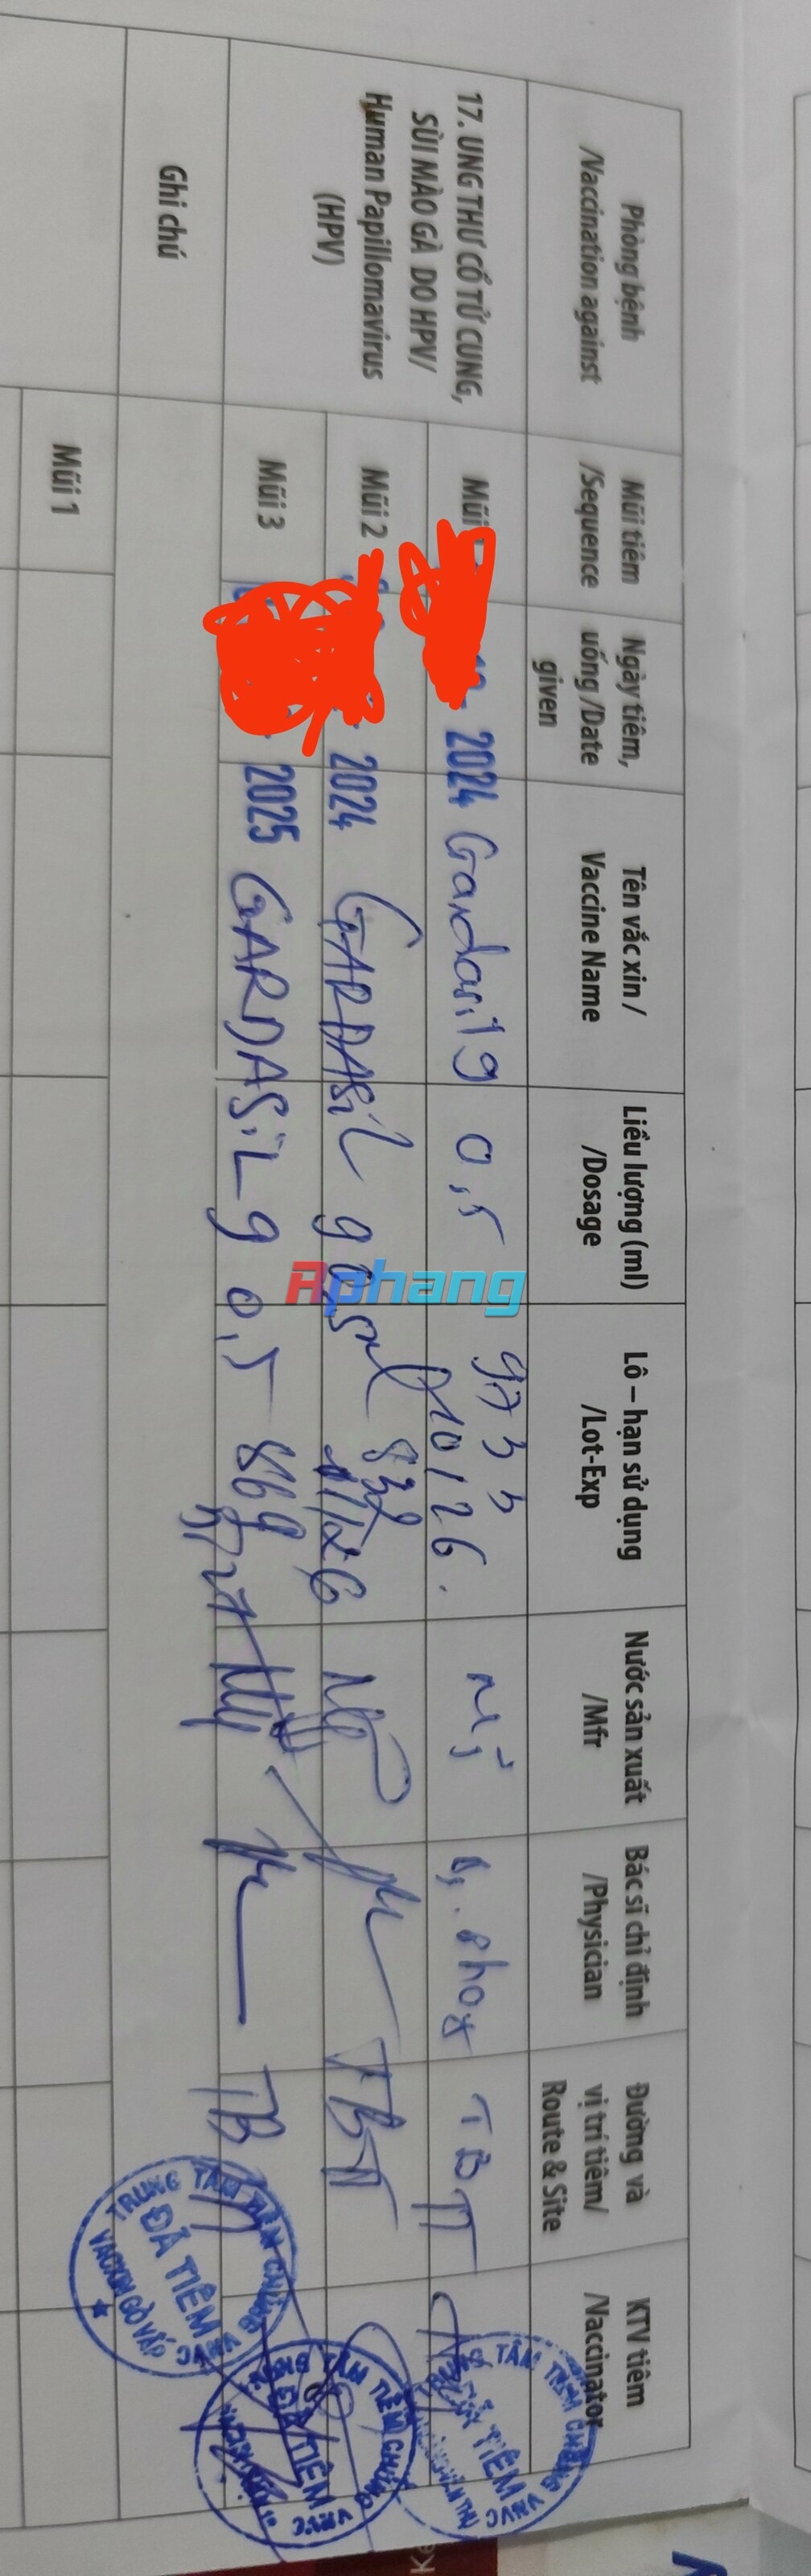 Phòng bệnh
/Vaccination against
Mũi tiêm
/Sequence
Ngày tiêm,
uống /Date
given
Tên vắc xin /
Vaccine Name
Liều lượng (ml)
/Dosage
Lô – hạn sử dụng
/Lot-Exp
Nước sản xuất
/Mfr
Bác sĩ chỉ định
/Physician
Đường và
vị trí tiêm/
Route & Site
KTV tiêm
/Vaccinator
17. UNG THƯ CỔ TỬ CUNG,
SÙI MÀO GÀ DO HPV/
Human Papillomavirus
(HPV)
Mũi
2024
Gardasil 9
0,5
10/26.
Mỹ
TBT
Mũi 2
2024
GARDASiL 9
0,5ml
Mỹ
TBT
Mũi 3
2025
GARDASiL 9
0,5
869
TB
Ghi chú
Mũi 1
Rphang
TRUNG TÂM TIÊM CHỦNG VNVC
ĐÃ TIÊM
VACXIN GÒ VẤP
TÂM TIÊM CHỦNG VNVC
ĐÃ TIÊM
TÂM TIÊM CHỦNG VNVC
ĐÃ TIÊM